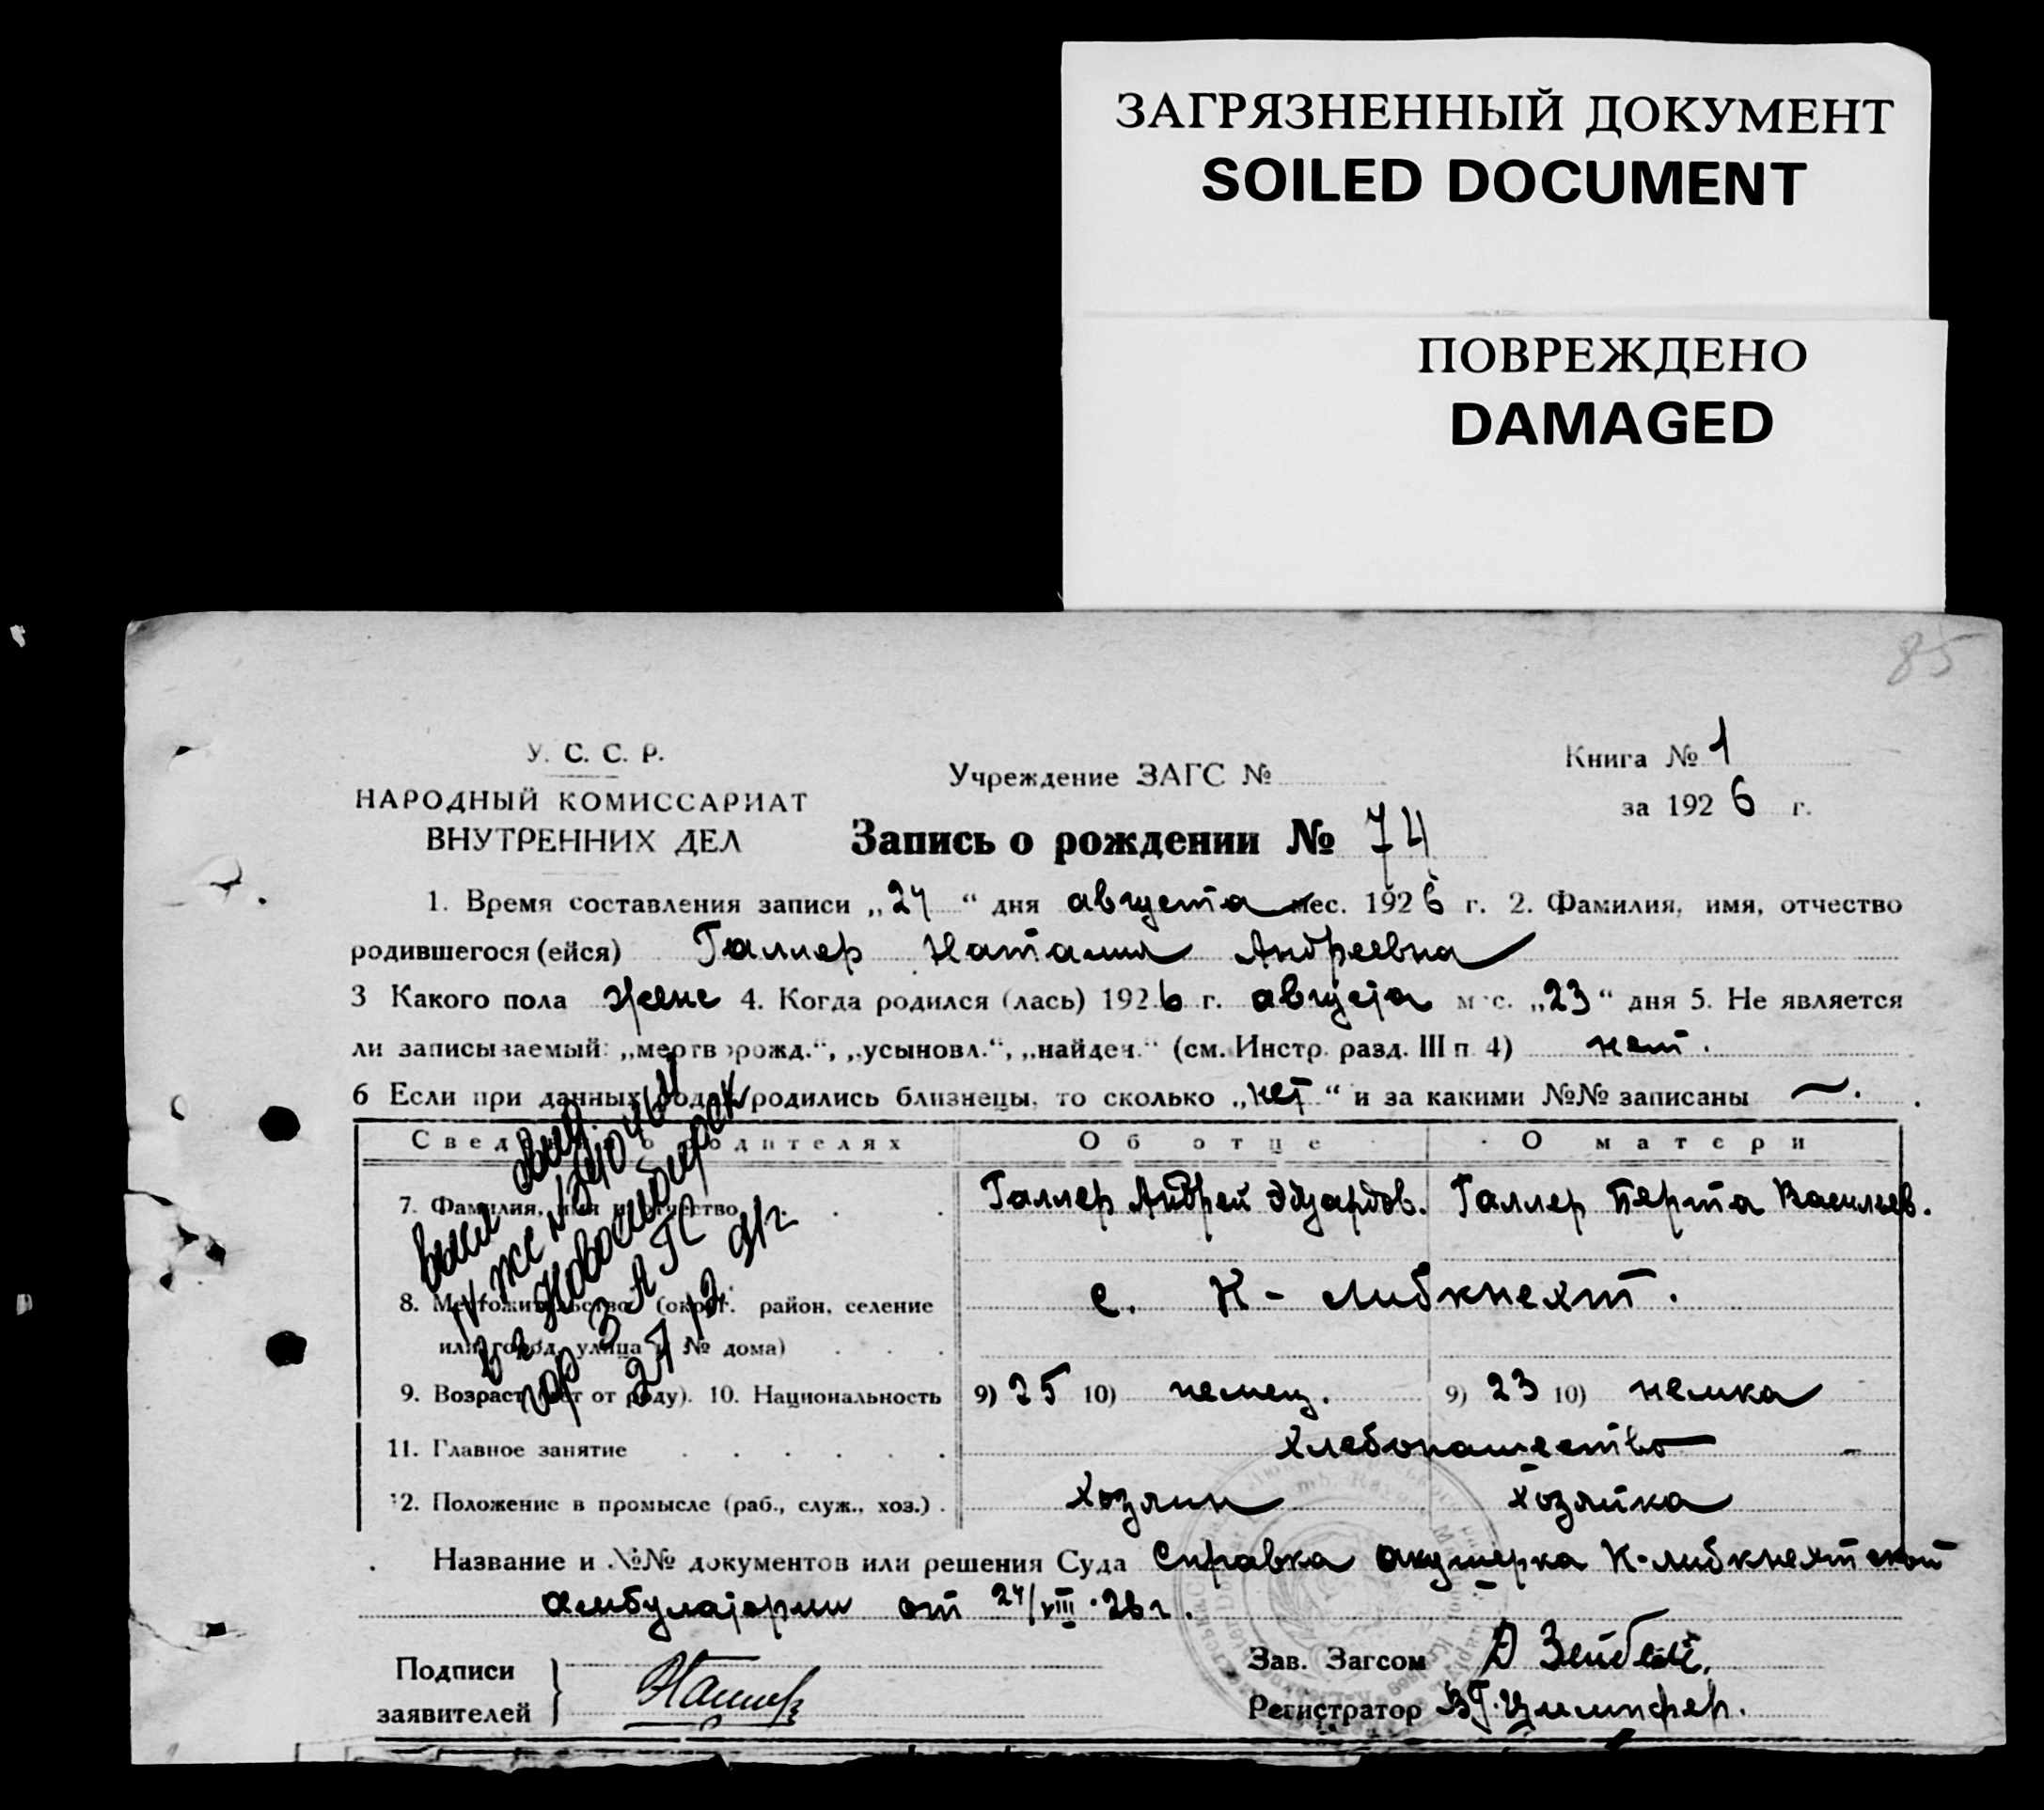 ЗАГРЯЗНЕННЫЙ ДОКУМЕНТ
SOILED DOCUMENT
ПОВРЕЖДЕНО
DAMAGED
85
У. С. С. Р.
НАРОДНЫЙ КОМИССАРИАТ
ВНУТРЕННИХ ДЕЛ
Учреждение ЗАГС №
Книга № 1
за 1926 г.
Запись о рождении № 74
1. Время составления записи „24“ дня августа мес. 1926 г. 2. Фамилия, имя, отчество
родившегося (ейся) Галлер Наталия Андреевна
3 Какого пола женс 4. Когда родился (лась) 1926 г. августа мес. „23“ дня 5. Не является
ли записываемый: „мертворожд.“, „усыновл.“, „найден.“ (см. Инстр. разд. III п 4) нет.
6 Если при данных родах родились близнецы, то сколько „нет“ и за какими №№ записаны —.
Сведения о родителях Об отце О матери
7. Фамилия, имя и отчество Галлер Андрей Эдуардов. Галлер Берта Васильев.
8. Местожительство (округ, район, селение с. К-Либкнехт.
или город, улица и № дома)
9. Возраст (лет от роду). 10. Национальность 9) 25 10) немец. 9) 23 10) немка
11. Главное занятие хлебопашество
12. Положение в промысле (раб., служ., хоз.) хозяин хозяйка
Название и №№ документов или решения Суда Справка акушерка К-Либкнехтской
амбулатории от 24/VIII.26 г.
Подписи
заявителей
Зав. Загсом
Регистратор
в г Новосибирск
гор ЗАГС